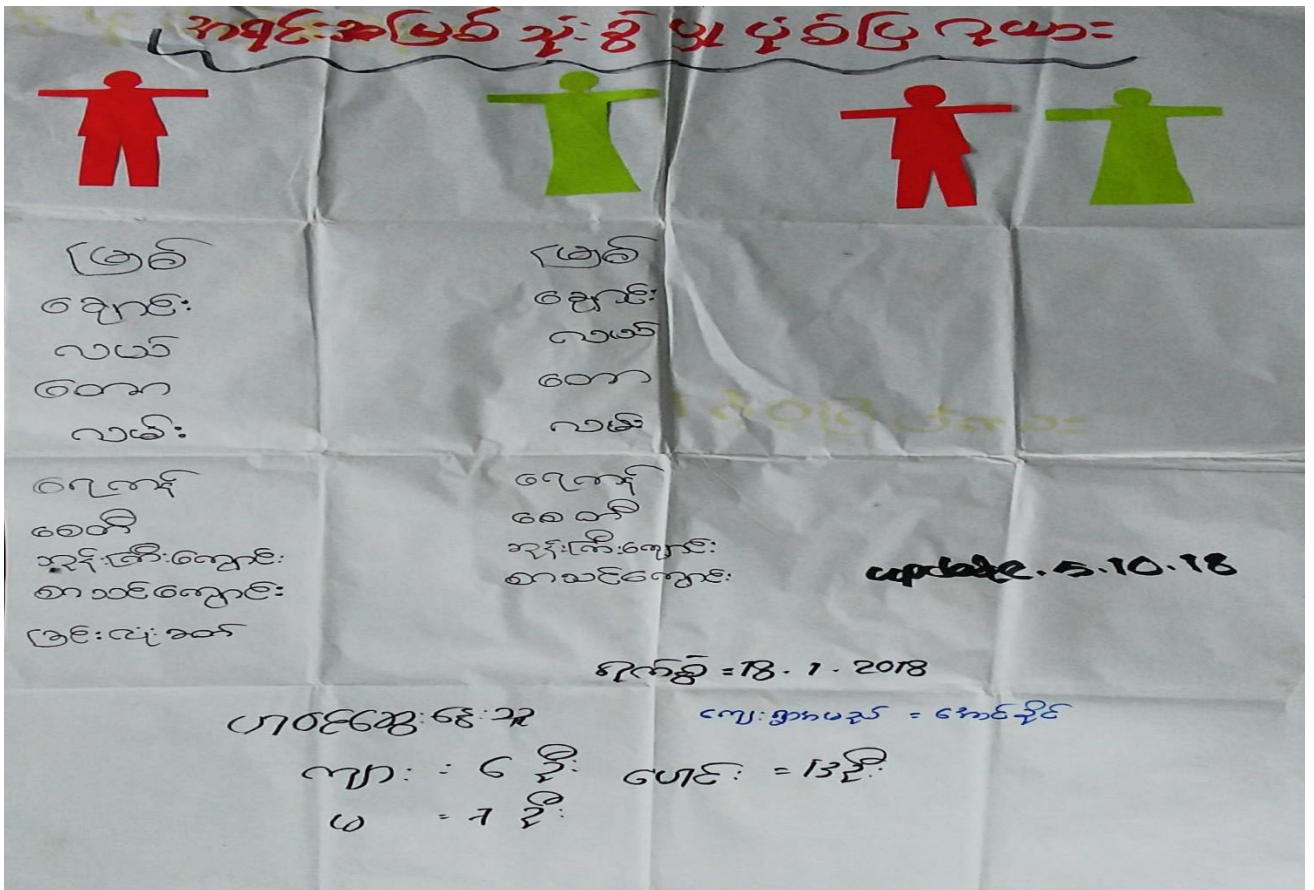 အရင်းအမြစ် သုံးစွဲ မှု ပုံစံပြ ဂူယား
မြစ်
ချောင်း
လယ်
တော
လမ်း
ရေကန်
စေတီ
ဘုန်းကြီးကျောင်း
စာသင်ကျောင်း
ခြင်းလုံးခတ်
မြစ်
ချောင်း
လယ်
တော
လမ်း
ရေကန်
စေတီ
ဘုန်းကြီးကျောင်း
စာသင်ကျောင်း
update. 5.10.18
ရက်စွဲ = 18 - 1 - 2018
ပါဝင်ဆွေးနွေးသူ
ကျေးရွာအမည် = အောင်ခိုင်
ကျား = ၆ ဦး ပေါင်း = 13 ဦး
မ = ၇ ဦး